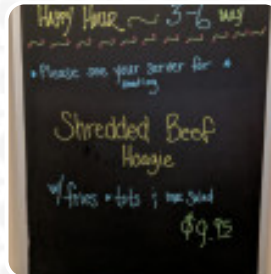 HAPPY HOUR ~ 3-6
* Please see your server for *
Shredded Beef
Hoagie
w/ fries * tots ; mac salad
$9.95